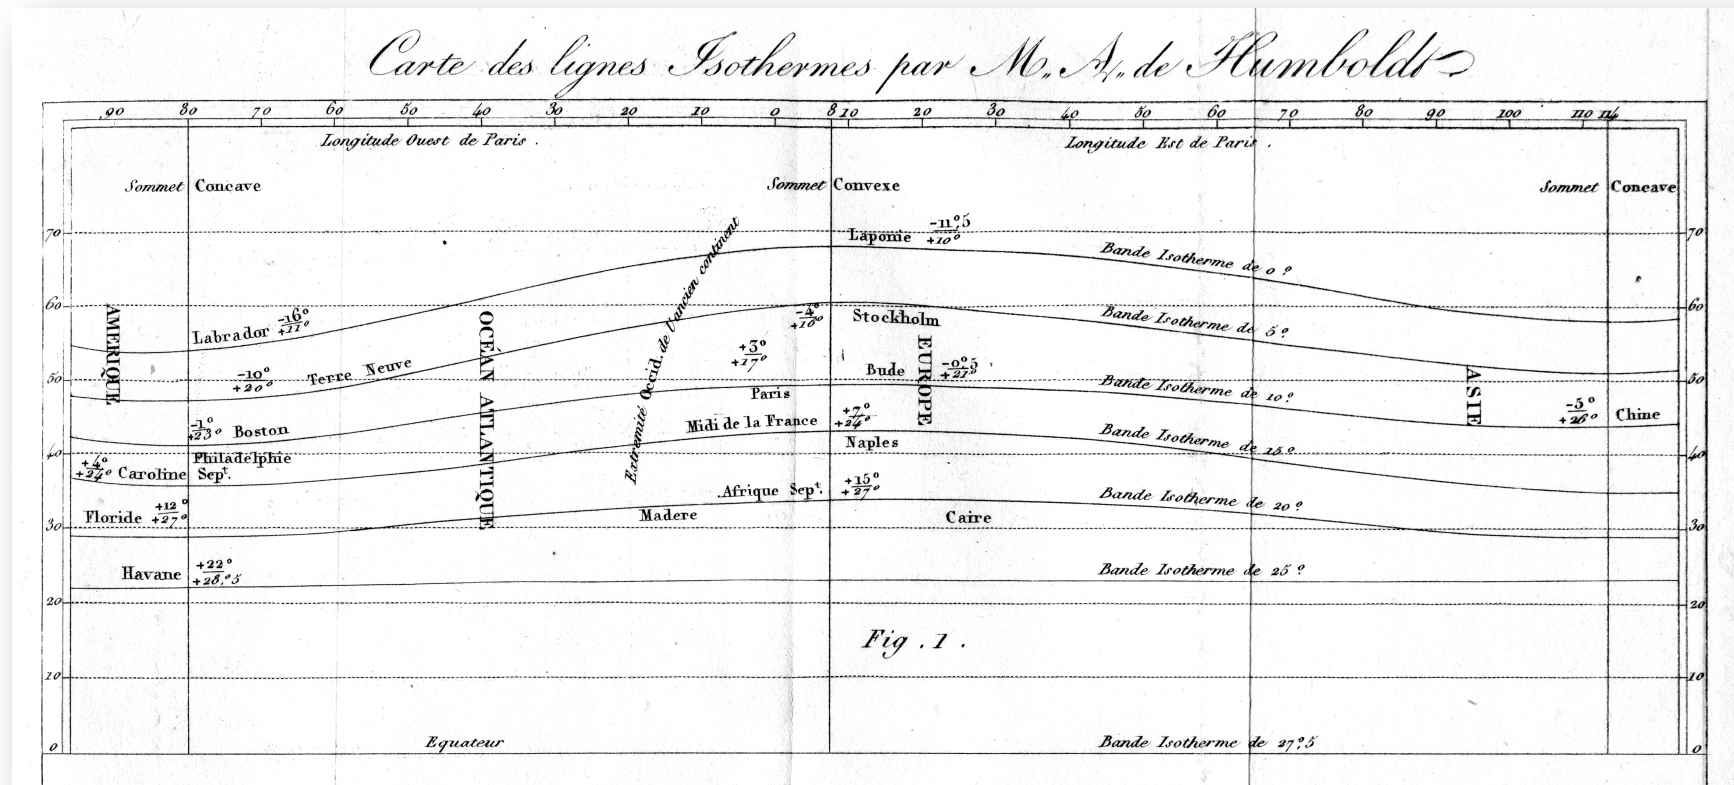 Carte des lignes Isothermes par M. A. de Humboldt
90 80 70 60 50 40 30 20 10 0 8 10 20 30 40 50 60 70 80 90 100 110 114
Longitude Ouest de Paris . Longitude Est de Paris .
Sommet Concave Sommet Convexe Sommet Concave
70 70
Laponie -11°,5
+10°
Bande Isotherme de 0°
60 60
AMERIQUE
OCÉAN ATLANTIQUE
Extremité Occid. de l'ancien continent
EUROPE
ASIE
Labrador -16°
+11°
-4°
+16°
Stockholm
Bande Isotherme de 5°
-10°
+20°
Terre Neuve
+3°
+17°
Bude -0°,5
+21°
50 50
Paris
Bande Isotherme de 10°
-5°
+26°
Chine
-1°
+23°
Boston
Midi de la France +7°
+24°
Naples
Bande Isotherme de 15°
40 40
Philadelphie
+4°
+24°
Caroline Sept.
Afrique Sept. +15°
+27°
Bande Isotherme de 20°
Floride +12°
+27°
Madere
Caire
30 30
Havane +22°
+28°,5
Bande Isotherme de 25°
20 20
Fig . 1 .
10 10
Equateur
Bande Isotherme de 27°5
0 0